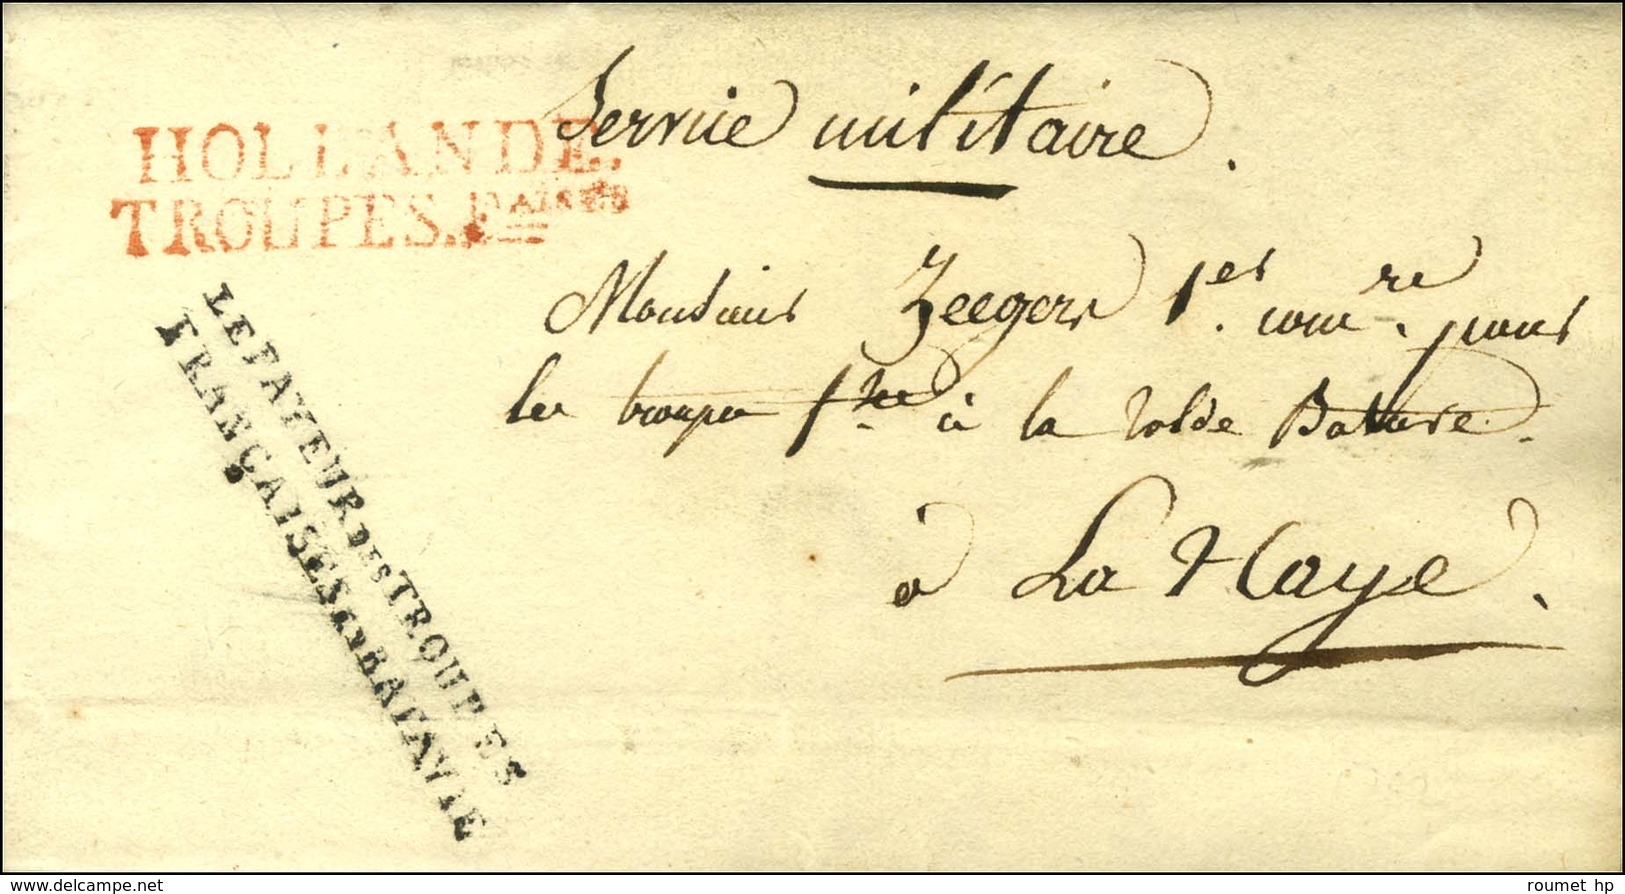 Service militaire.
HOLLANDE.
TROUPES.F.AISES
Monsieur Zeegers 1er. com.re pour
les troupes f.ses à la solde Batave.
à La Haye.
LE PAYEUR DES TROUPES
FRANÇAISES EN BATAVIE
www.delcampe.net
roumet hp